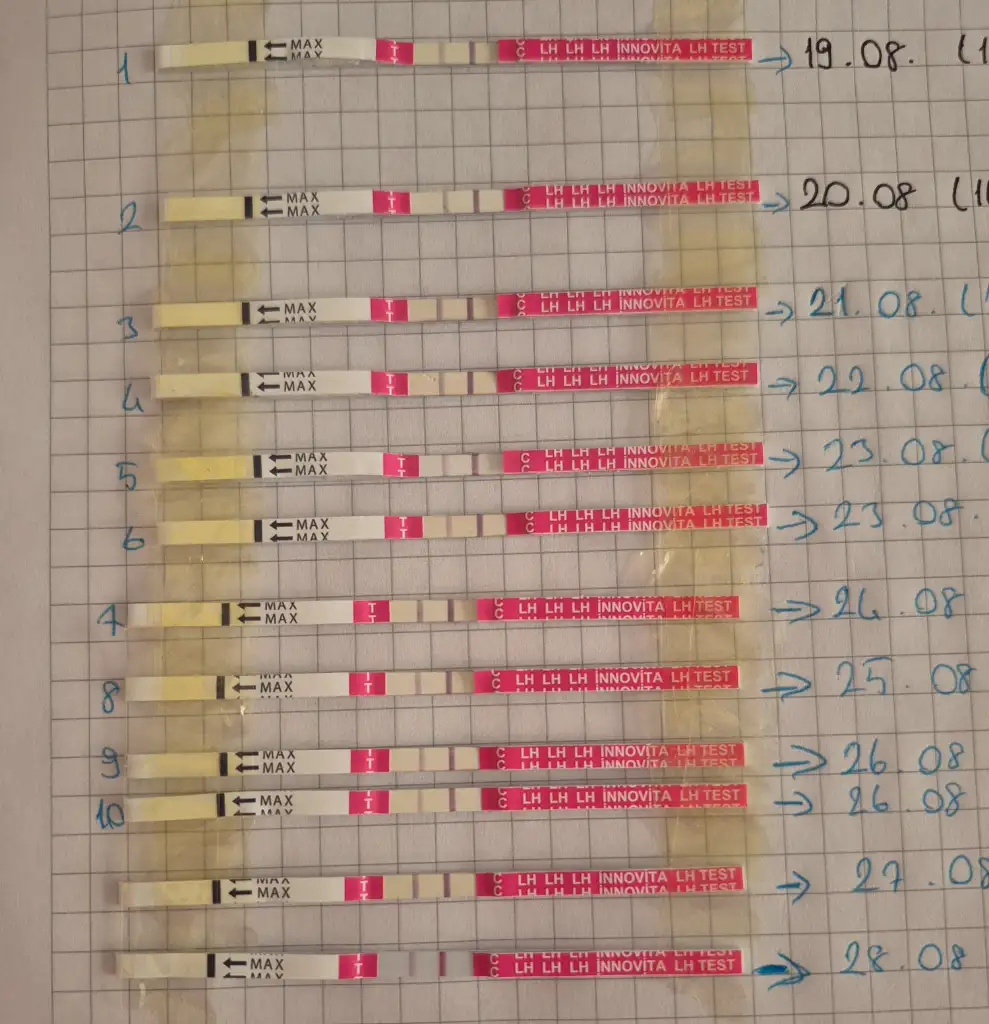 1 MAX MAX T T C C LH LH LH İNNOVİTA LH TEST → 19.08. (1
2 MAX MAX T C LH LH LH İNNOVİTA LH TEST LH LH LH İNNOVİTA LH TEST → 20.08 (10
3 MAX MAX T C C LH LH LH İNNOVİTA LH TEST LH LH LH İNNOVİTA LH TEST → 21.08. (
4 MAX MAX T C C LH LH LH İNNOVİTA LH TEST → 22.08. (
5 MAX MAX T T C LH LH LH İNNOVİTA LH TEST LH LH LH İNNOVİTA LH TEST → 23.08. (
6 MAX MAX T T C C LH LH LH İNNOVİTA LH TEST LH LH LH İNNOVİTA LH TEST → 23.08.
7 MAX MAX T T C C LH LH LH İNNOVİTA LH TEST → 24.08
8 MAX MAX T T C C LH LH LH İNNOVİTA LH TEST → 25.08
9 MAX MAX T T C LH LH LH İNNOVİTA LH TEST → 26.08
10 MAX MAX T T C C LH LH LH İNNOVİTA LH TEST → 26.08
MAX MAX T T C LH LH LH İNNOVİTA LH TEST → 27.08
MAX MAX T T C C LH LH LH İNNOVİTA LH TEST → 28.08